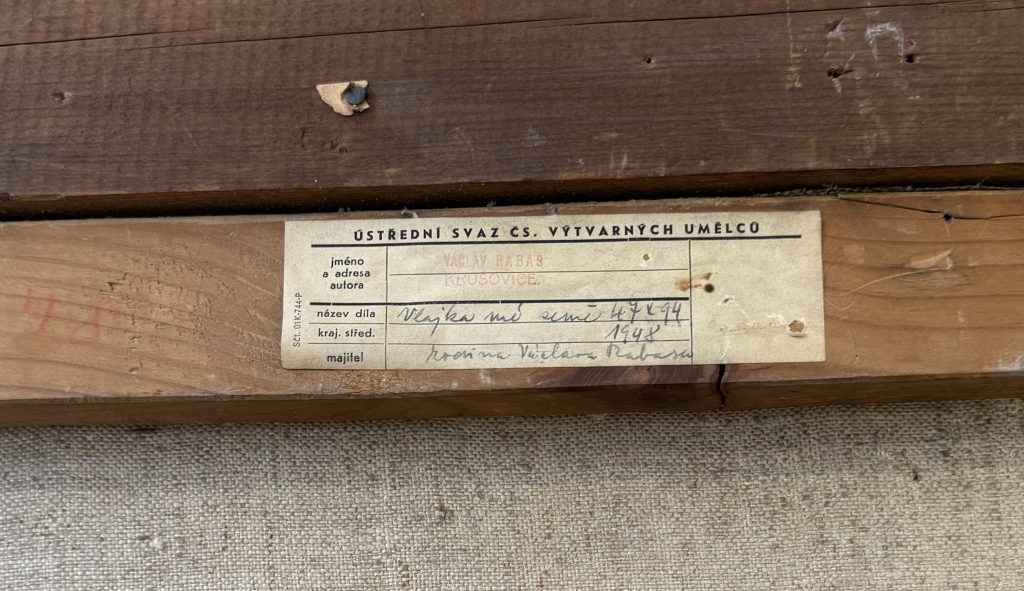 ÚSTŘEDNÍ SVAZ ČS. VÝTVARNÝCH UMĚLCŮ
jméno
a adresa
autora
VÁCLAV RABAS
KRUŠOVICE.
název díla
Vlajka mé země 47 x 94
kraj. střed.
1948
majitel
rodina Václava Rabasa
Sčt. 01K-744-P